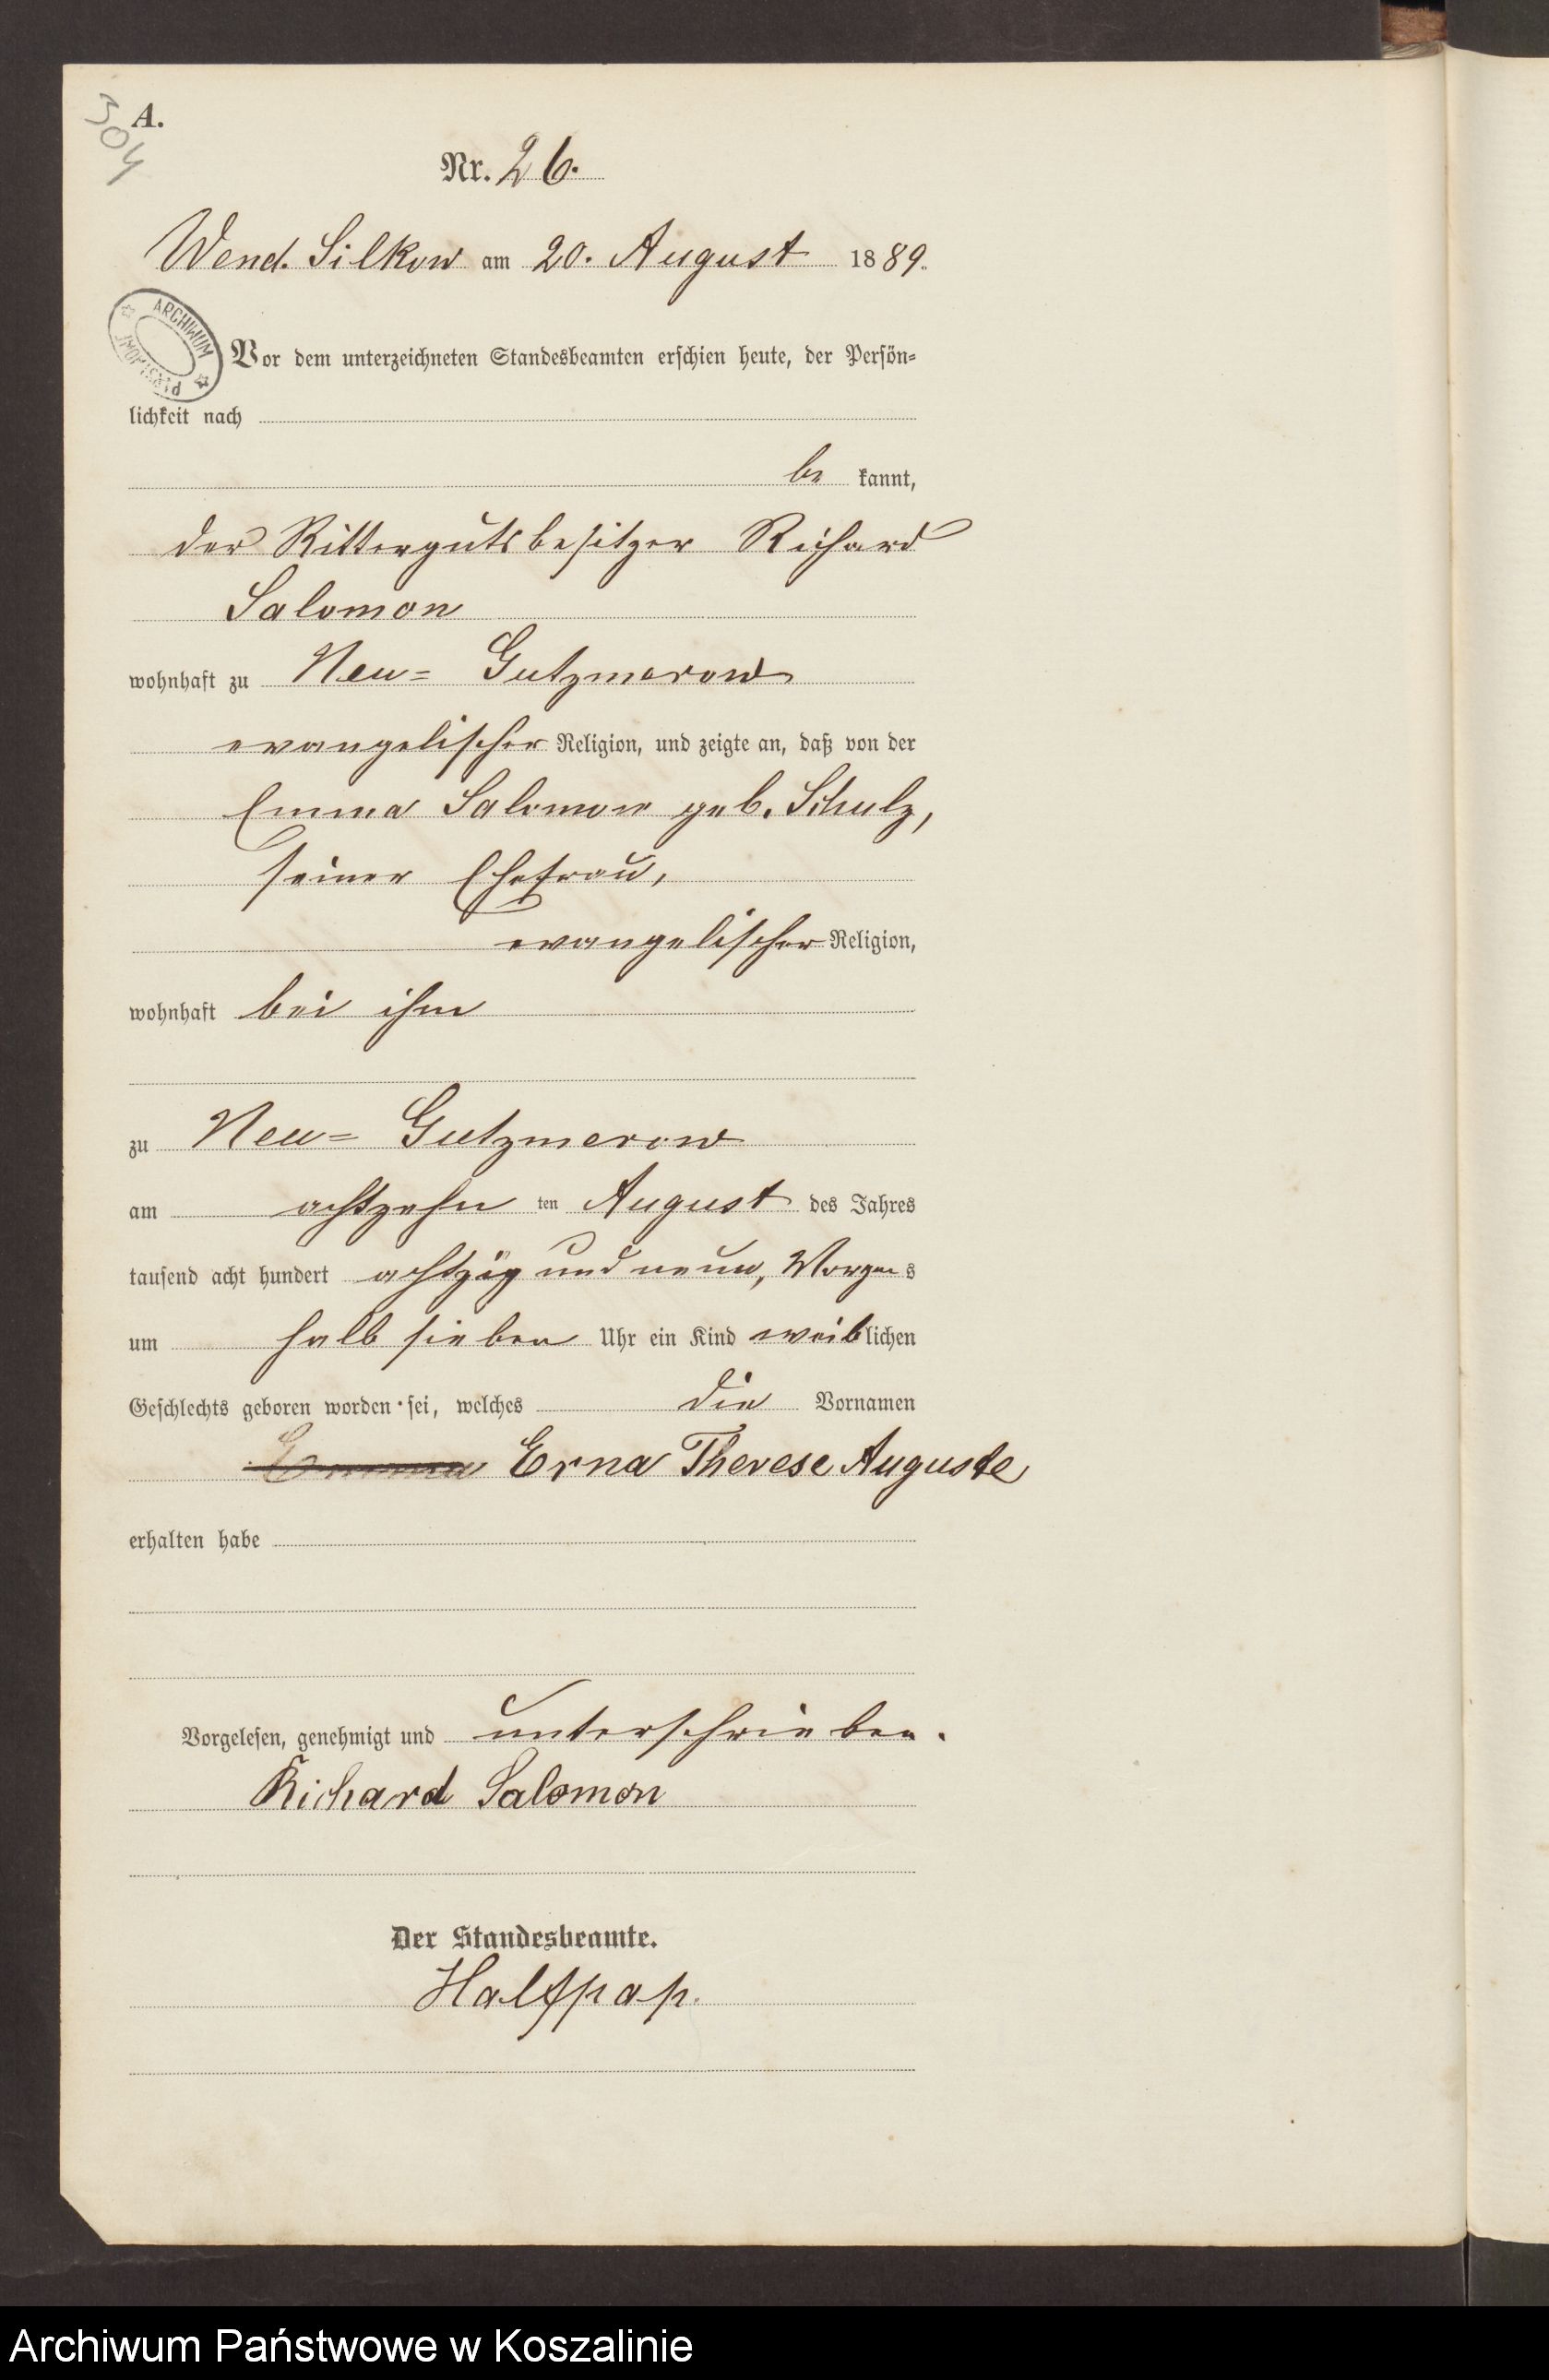 304
A.
Nr. 26.
Wend. Silkow am 20. August 1889.
ARCHIWUM
Vor dem unterzeichneten Standesbeamten erschien heute, der Persön=
lichkeit nach
be kannt,
der Rittergutsbesitzer Richard
Salomon
wohnhaft zu Neu= Gutzmerow
evangelischer Religion, und zeigte an, daß von der
Emma Salomon geb. Schulz,
seiner Ehefrau,
evangelischer Religion,
wohnhaft bei ihm
zu Neu= Gutzmerow
am achtzehn ten August des Jahres
tausend acht hundert achtzig und neun, Morgens
um halb sieben Uhr ein Kind weiblichen
Geschlechts geboren worden sei, welches die Vornamen
Emma Erna Therese Auguste
erhalten habe
Vorgelesen, genehmigt und unterschrieben.
Richard Salomon
Der Standesbeamte.
Halfpap.
Archiwum Państwowe w Koszalinie